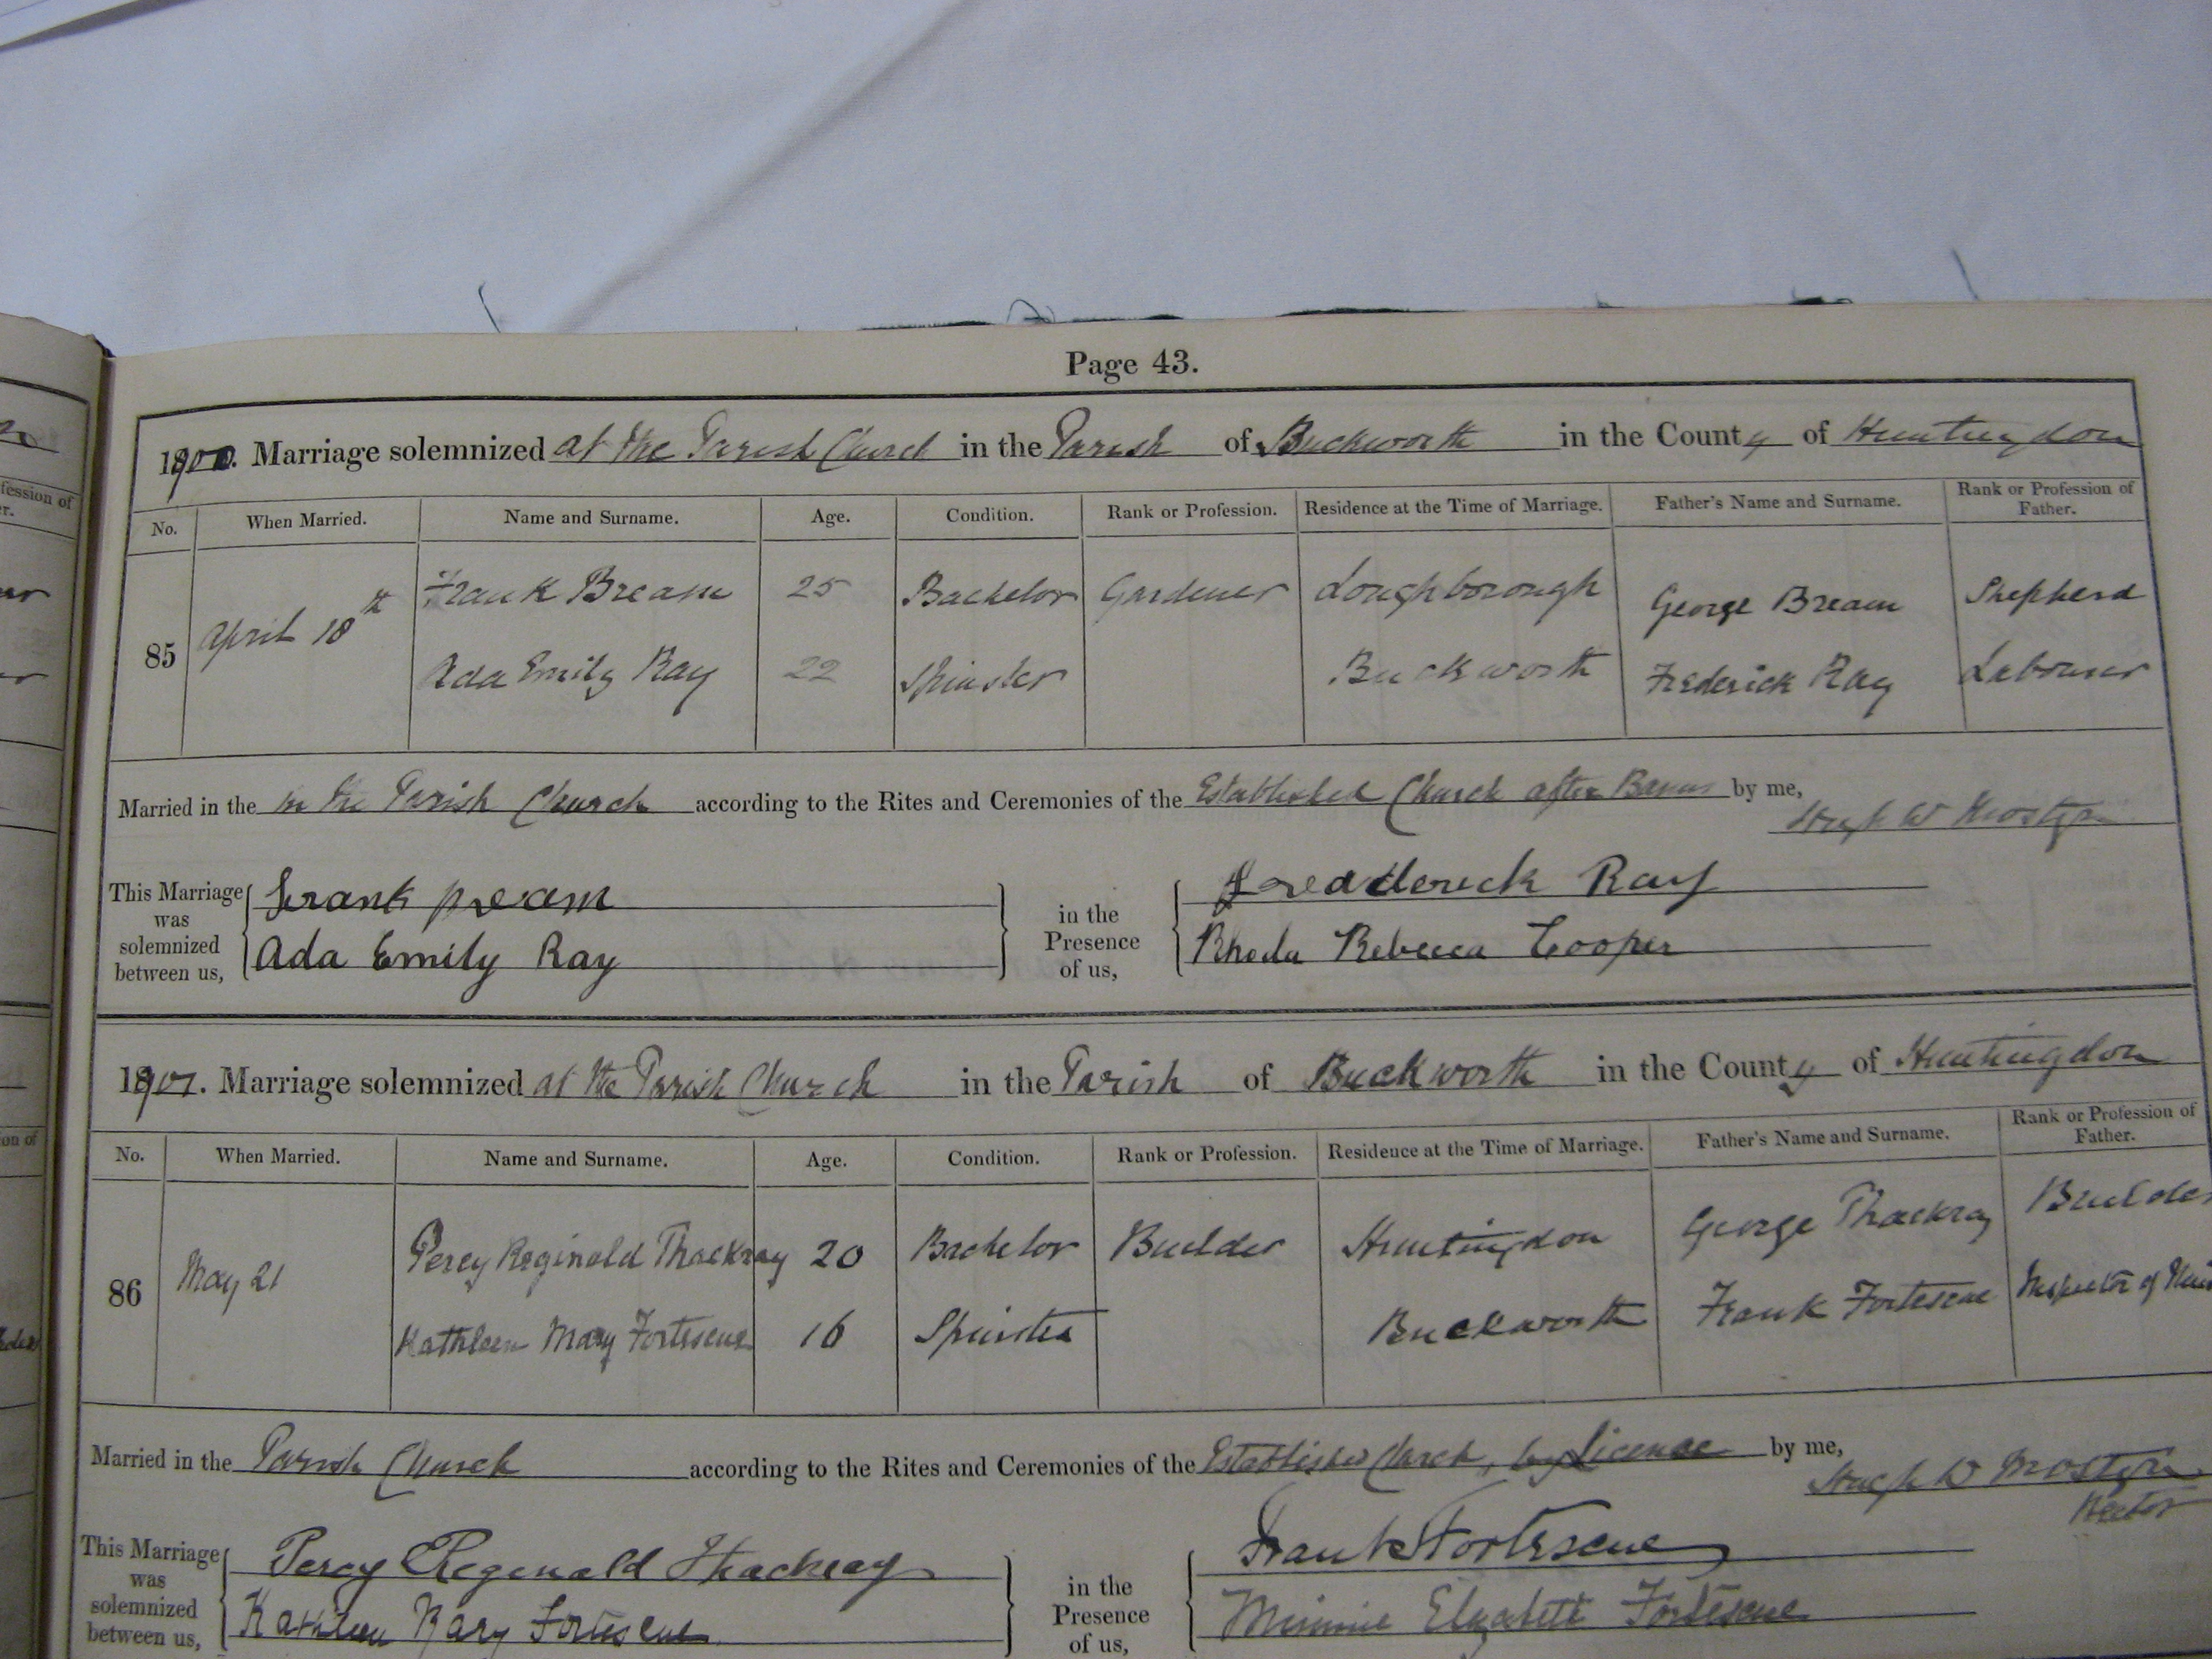 Page 43.
1900. Marriage solemnized at the Parish Church in the Parish of Buckworth in the County of Huntingdon
No. When Married. Name and Surname. Age. Condition. Rank or Profession. Residence at the Time of Marriage. Father's Name and Surname. Rank or Profession of Father.
85 April 18th Frank Bream 25 Bachelor Gardener Loughborough George Bream Shepherd
Ada Emily Ray 22 Spinster Buckworth Frederick Ray Labourer
Married in the in the Parish Church according to the Rites and Ceremonies of the Established Church after Banns by me,
Hugh W Mostyn
This Marriage was solemnized between us,
Frank Bream
Ada Emily Ray
in the Presence of us,
Freadderick Ray
Rhoda Rebecca Cooper
1901. Marriage solemnized at the Parish Church in the Parish of Buckworth in the County of Huntingdon
No. When Married. Name and Surname. Age. Condition. Rank or Profession. Residence at the Time of Marriage. Father's Name and Surname. Rank or Profession of Father.
86 May 21 Percy Reginald Thackray 20 Bachelor Builder Huntingdon George Thackray Builder
Kathleen Mary Fortescue 16 Spinster Buckworth Frank Fortescue Inspector of
Married in the Parish Church according to the Rites and Ceremonies of the Established Church, by License by me,
Hugh W Mostyn
Rector
This Marriage was solemnized between us,
Percy Reginald Thackray
Kathleen Mary Fortescue
in the Presence of us,
Frank Fortescue
Minnie Elizabeth Fortescue